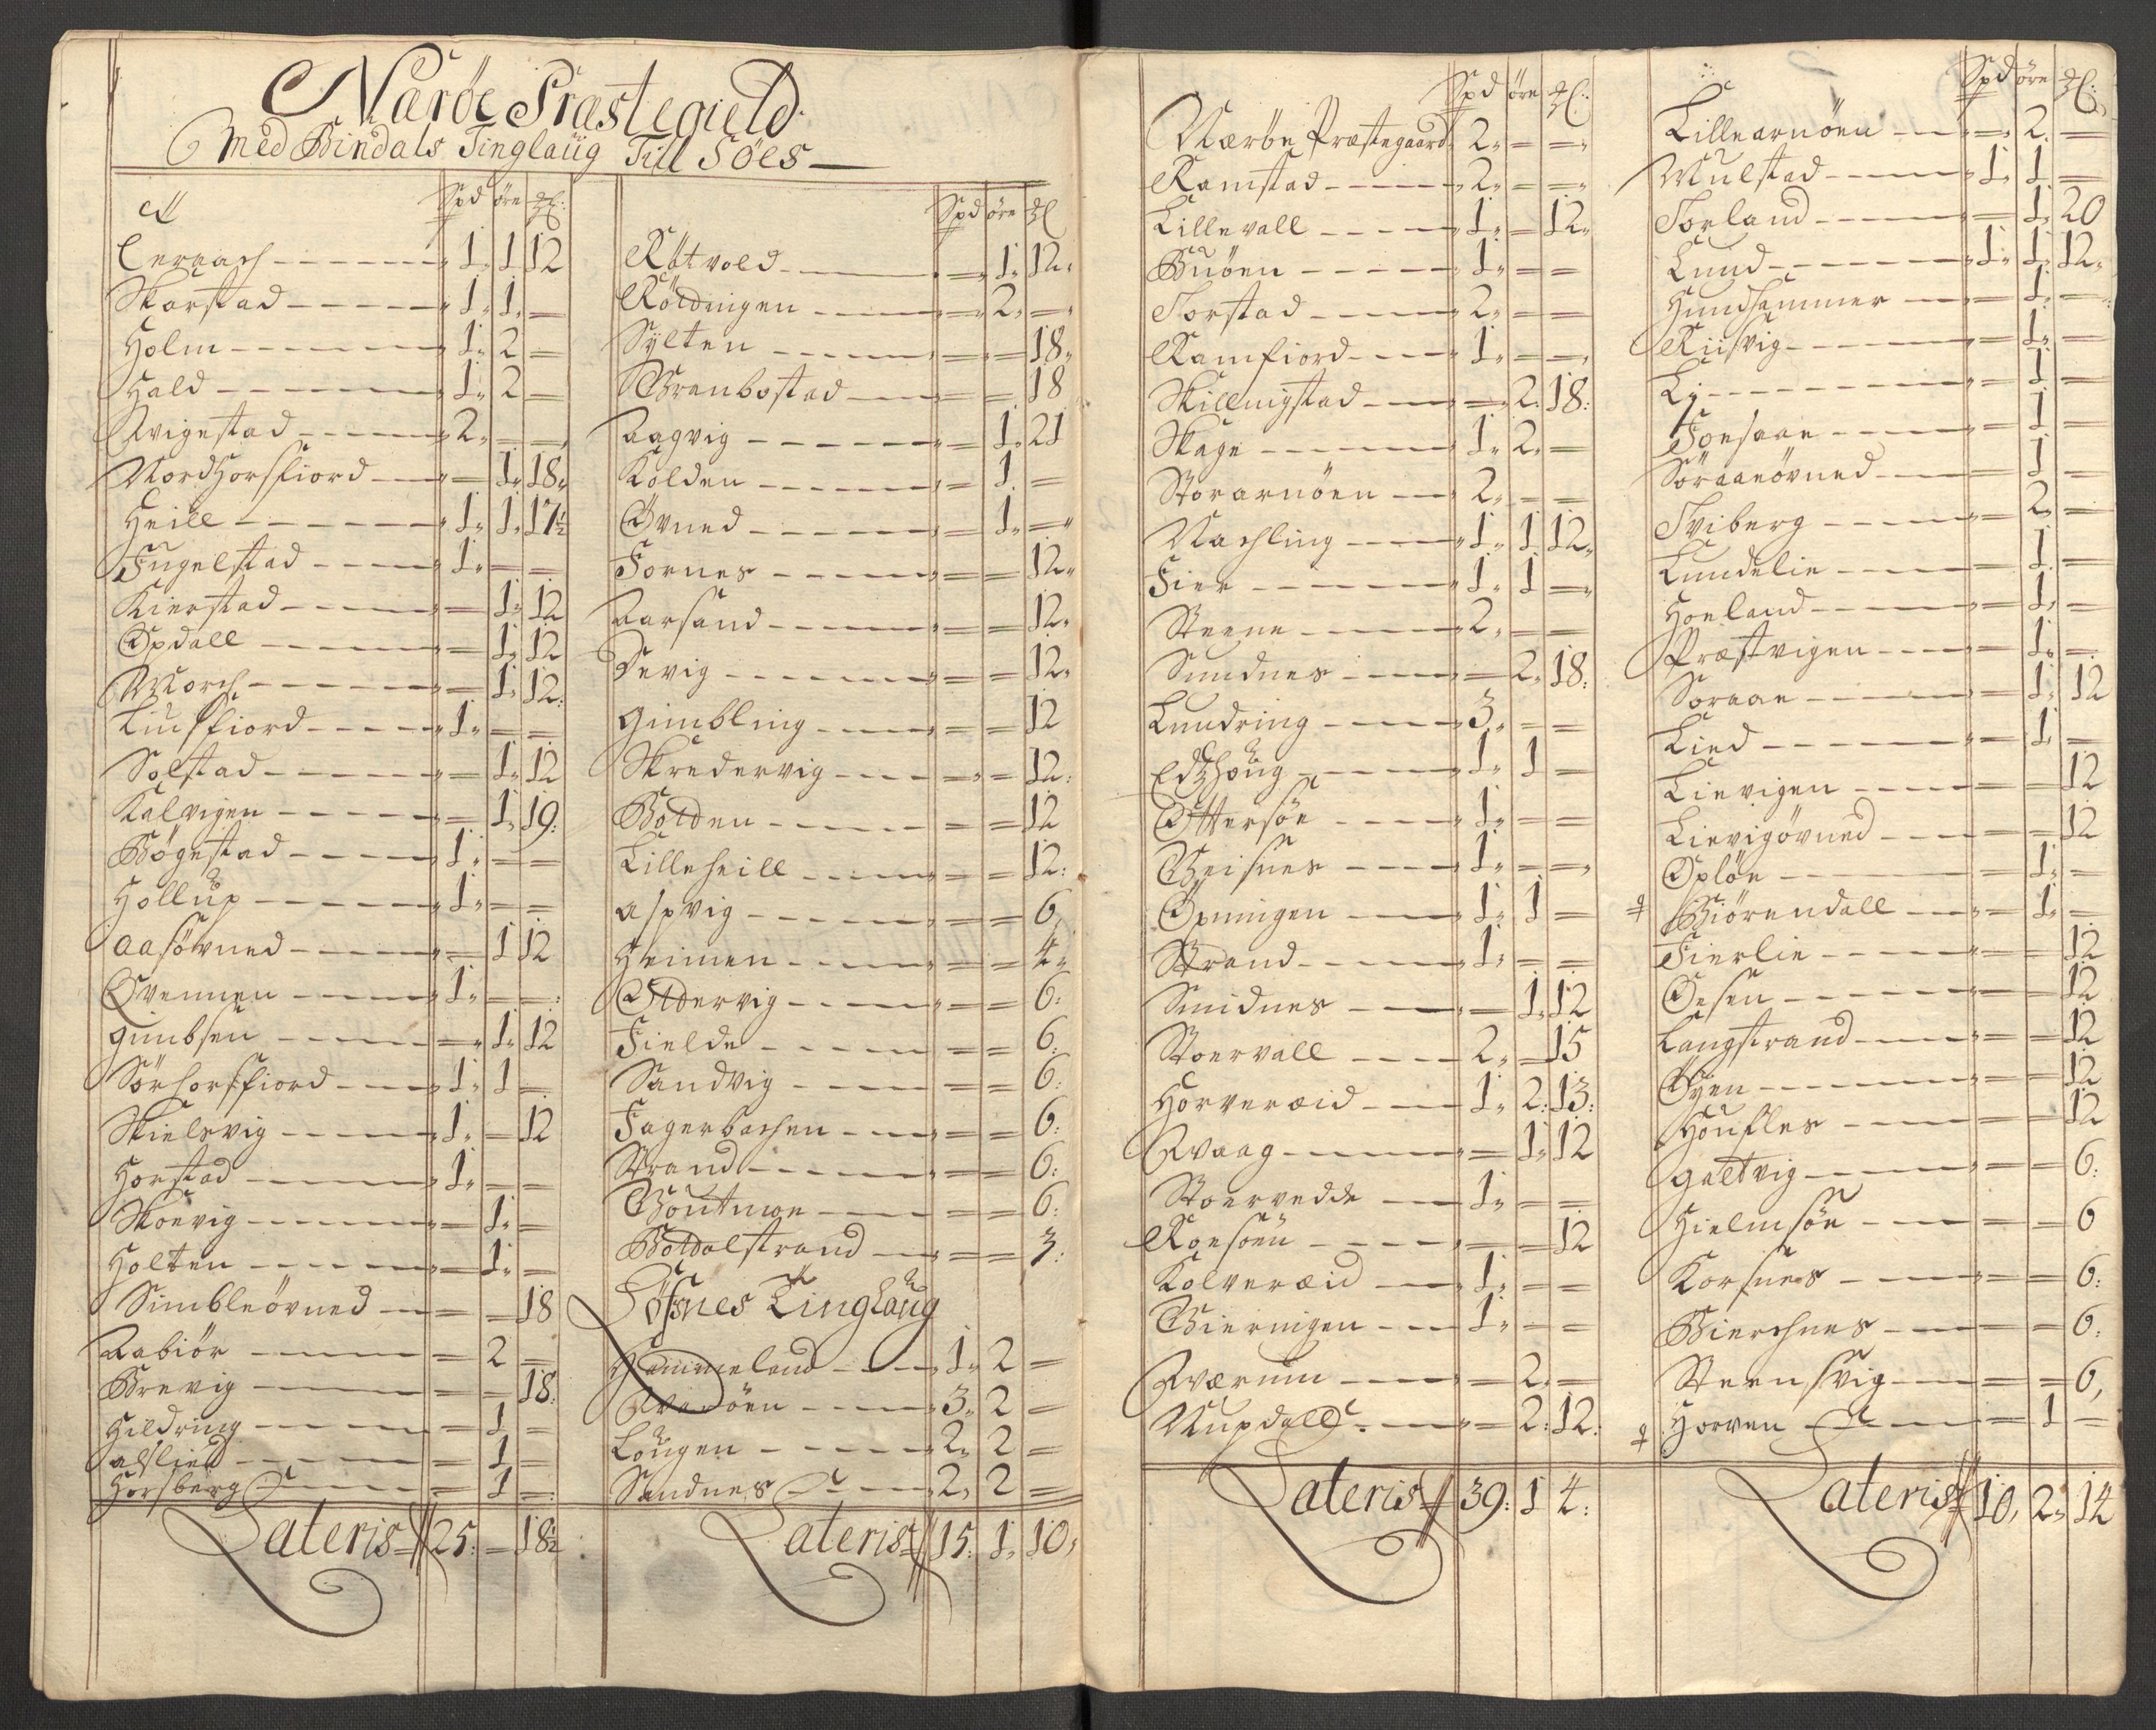 Nærøe Præstegield
Med Bindals Tinglaug Till Søes
Spd øre
Terrach 1 1 12
Skarstad 1 1 =
Holm 1 2 =
Hald 1 2 =
Qvigestad 2 = =
Nordhorsfiord = 1 18
Heill 1 1 17½
Fugelstad 1 = =
Kierstad = 1 12
Opdall = 1 12
March = 1 12
Liusfiord 1 = =
Solstad = 1 12
Kalvigen = 1 19
Bøgestad 1 = =
Hollup 1 = =
Aasøvned = 1 12
Qvennen 1 = =
Gimbsen = 1 12
Sørhorsfiord 1 1 =
Skielsvig 1 = 12
Horstad 1 = =
Skoevig = 1 =
Holten = 1 =
Simbleøvned = = 18
Aabiør = 2 =
Brevig = = 18
Hildring = 1 =
Aslied = 1 =
Horsberg = 1 =
Lateris 25 = 18½
Spd øre
Røtvold = 1 12
Røldningen = 2 =
Sylten = = 18
Granbostad = = 18
Aagvig = 1 21
Kolden = 1 =
Øvned = 1 =
Fornes = = 12
Aarsand = = 12
Sevig = = 12
Gimbling = = 12
Skredervig = = 12
Bolden = = 12
Lilleheill = = 12
Aspvig = = 6
Heimen = = 4
Oldervig = = 6
Fielde = = 6
Sandvig = = 6
Fagerbachen = = 6
Strand = = 6
Goutmoe = = 6
Boldalstrand = = 3
Føsnes Tinglaug
Hammeland 1 2 =
Qverøen 3 2 =
Lougen 2 2 =
Sandnes 2 2 =
Lateris 15 1 10
Spd øre
Nærøe Præstegaard 2 = =
Ramstad 2 = =
Lillevall 1 = 12
Buøen 1 = =
Torstad 2 = =
Ramfiord 1 = =
Skillingstad = 2 18
Skage 1 2 =
Storarnøen 2 = =
Machling 1 1 12
Fier 1 1 =
Steene 2 = =
Sundnes = 2 18
Lundring 3 = =
Edtzhoug 1 1 =
Ottersøe 1 = =
Geisnes 1 = =
Opningen 1 1 =
Strand 1 = =
Smidnes = 1 12
Stoervall 2 = 15
Horveræid 1 2 13
Qvaag = 1 12
Stoervedde 1 = =
Roesøen = = 12
Kolveræid 1 = =
Gieringen 1 = =
Qværum = 2 =
Nupdall = 2 12
Lateris 39 1 4
Spd øre
Lillearnøen = 2 =
Mulstad 1 1 =
Torland = 1 20
Lund 1 1 12
Hundhammer = 1 =
Riisvig = 1 =
Li = 1 =
Foesaae = 1 =
Søraaeøvned = 1 =
Tviberg = 2 =
Lundelie = 1 =
Horland = 1 =
Præstvigen = 1 =
Soraae = 1 12
Lied = 1 =
Lievigen = = 12
Lievigøvned = = 12
Opløe = 1 =
Biørendall = 1 =
Fierlie = = 12
Oesen = = 12
Langstrand = = 12
Øyen = = 12
Houfles = = 12
Galtvig = = 6
Hielmsøe = = 6
Korsnes = = 6
Bierchnes = = 6
Steensvig = = 6
Horven = 1 =
Lateris 10 2 14